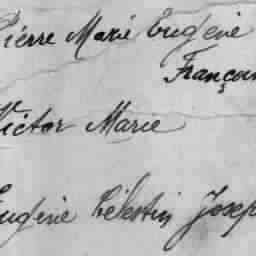 Pierre Marie Eugène
François
Victor Marie
Eugène Célestin Joseph